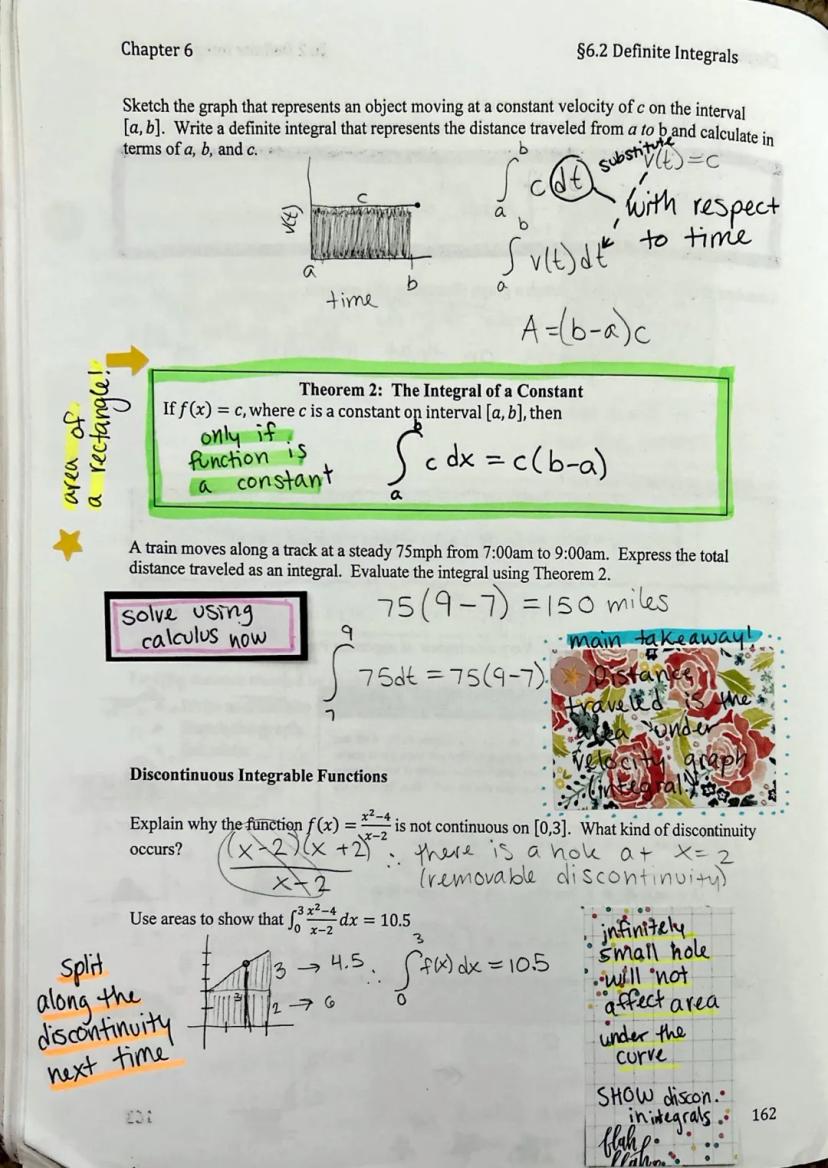 Chapter 6
§6.2 Definite Integrals
Sketch the graph that represents an object moving at a constant velocity of c on the interval
[a, b]. Write a definite integral that represents the distance traveled from a to b and calculate in
terms of a, b, and c.
v(t)
c
a
b
time
∫ₐᵇ c dt
substitute
v(t) = c
with respect
to time
∫ₐᵇ v(t) dt
A = (b-a)c
area of
a rectangle!
Theorem 2: The Integral of a Constant
If f(x) = c, where c is a constant on interval [a, b], then
only if
function is
a constant
∫ₐᵇ c dx = c(b-a)
A train moves along a track at a steady 75mph from 7:00am to 9:00am. Express the total
distance traveled as an integral. Evaluate the integral using Theorem 2.
solve using
calculus now
75(9-7) = 150 miles
∫₇⁹ 75dt = 75(9-7)
main takeaway!
Distance
traveled is the
area under
velocity graph
(integral)
Discontinuous Integrable Functions
Explain why the function f(x) = (x²-4)/(x-2) is not continuous on [0,3]. What kind of discontinuity
occurs?
(x-2)(x+2)
x-2
∴ there is a hole at x=2
(removable discontinuity)
Use areas to show that ∫₀³ (x²-4)/(x-2) dx = 10.5
3 → 4.5
2 → 6
3
∴ ∫₀³ f(x) dx = 10.5
Split
along the
discontinuity
next time
infinitely
small hole
will not
affect area
under the
curve
SHOW discon.
in integrals
blah
blah
162